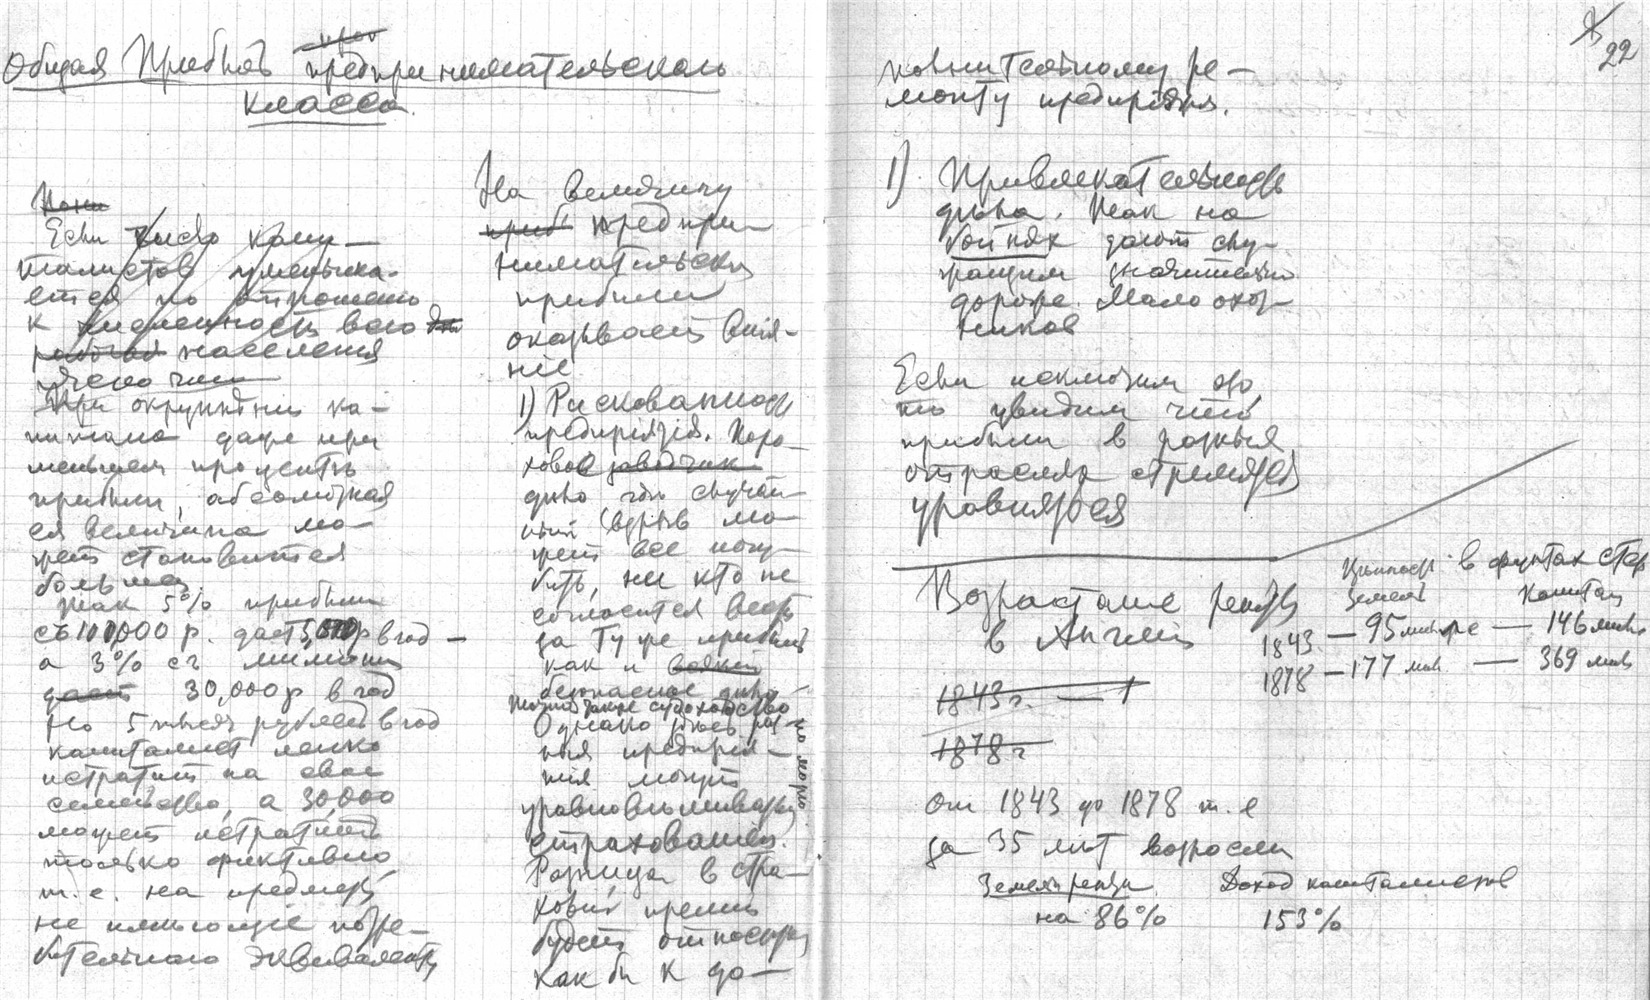 Общая Прибыль предпринимательскаго
класса
Если число капи-
талистов уменьша-
ется по отношению
к численности всего
рабочая населения
При округлении ка-
питала даже при
меньшем проценте
прибыли, абсолютная
ея величина мо-
жет становится
больше.
Так 5% прибыли
съ 100,000 р. дает 5,000 р в год —
а 3% съ миллиона
дает 30,000 р в год
Но 5 тысяч рублей в год
капиталист легко
истратит на свое
семейство, а 30,000
может истратить
только фиктивно
т. е. на предметы
не имеющие потре-
бительнаго эквивалента
На величину
приб предпри-
нимательской
прибыли
оказывает влия-
ніе
1) Рискованность
предпріятія. Поро-
ховое заводчик
дело где случай-
ный взрыв мо-
жет все погу-
бить, ни кто не
согласится вести
за ту же прибыль
как и всякий
безопасное дело
также судоходство
по морю
Однако здесь раз-
ныя предприя-
тия могут
уравновешиваться
страхованием.
Разница в стра-
ховой премии
будет относиться
как бы к до-
22
полнительному ре-
монту предпріятія.
1) Привлекательность
дела. Так на
бойнях дают слу-
жащим значительно
дороже. Мало охот-
ников
Если исключим это,
то увидим что
прибыли в разныя
отраслях стремятся
уравняться
Возрастание ренты
в Англіи
Ценность в фунтах стер
Земель Капитал
1843 — 95 — 146
1878 — 177 мил — 369 мил
1843 г. — 1
1878 г
От 1843 до 1878 т. е
за 35 лет возросли
Земел рента Доход капиталистов
на 86% 153%